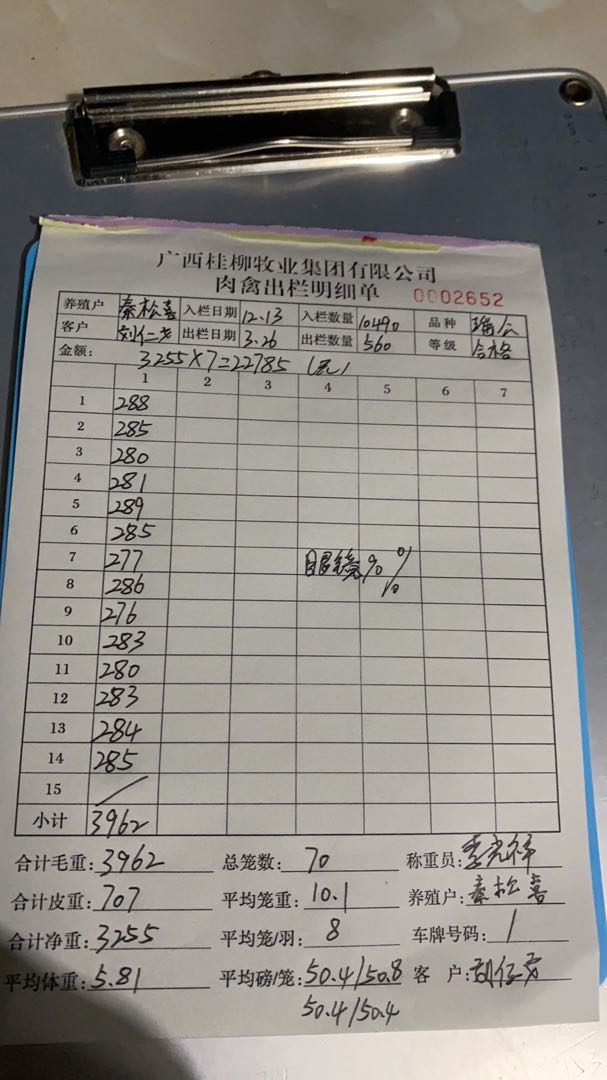 广西桂柳牧业集团有限公司
肉禽出栏明细单 0002652
养殖户 秦松喜 入栏日期 12.13 入栏数量 10490 品种 瑶公
客户 刘仁 出栏日期 3.26 出栏数量 560 等级 合格
金额: 3255×7=22785 (元)
1 2 3 4 5 6 7
1 288
2 285
3 280
4 281
5 289
6 285
7 277 眼镜90%
8 286
9 276
10 283
11 280
12 283
13 284
14 285
15 /
小计 3962
合计毛重: 3962 总笼数: 70 称重员:
合计皮重: 707 平均笼重: 10.1 养殖户: 秦松喜
合计净重: 3255 平均笼/羽: 8 车牌号码: 1
平均体重: 5.81 平均磅/笼: 50.4/50.8 客 户:
50.4/50.4